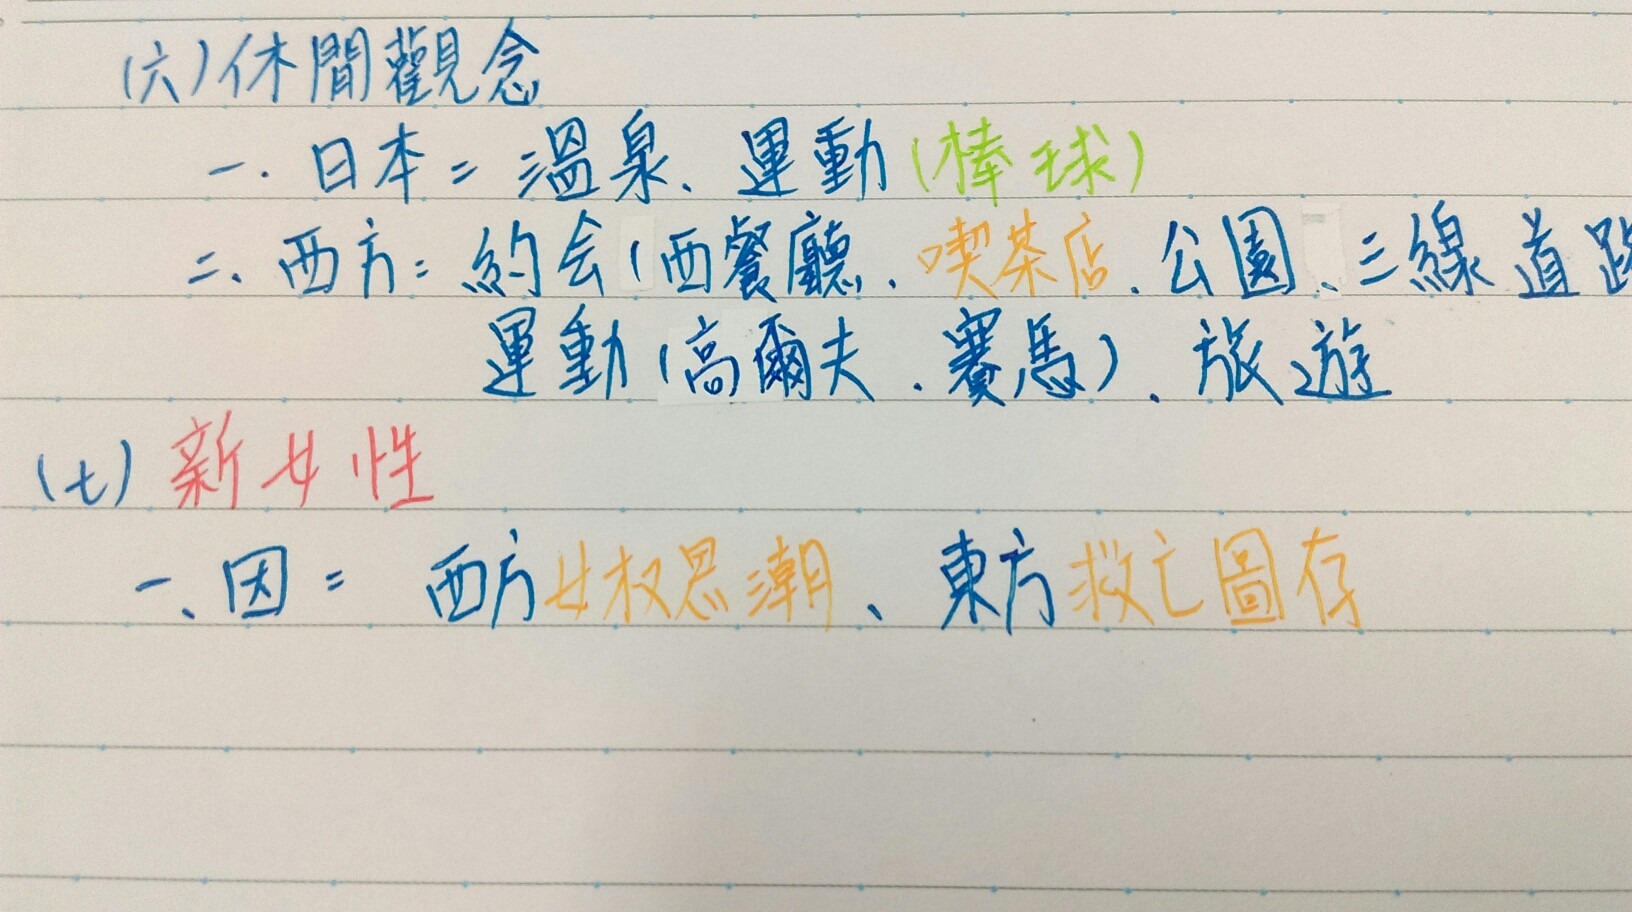 (六)休閒觀念
一.日本=溫泉、運動(棒球)
二、西方:約会(西餐廳、喫茶店、公園、三線道路
運動(高爾夫、賽馬)、旅遊
(七)新女性
一、因=西方女权思潮、東方救亡圖存